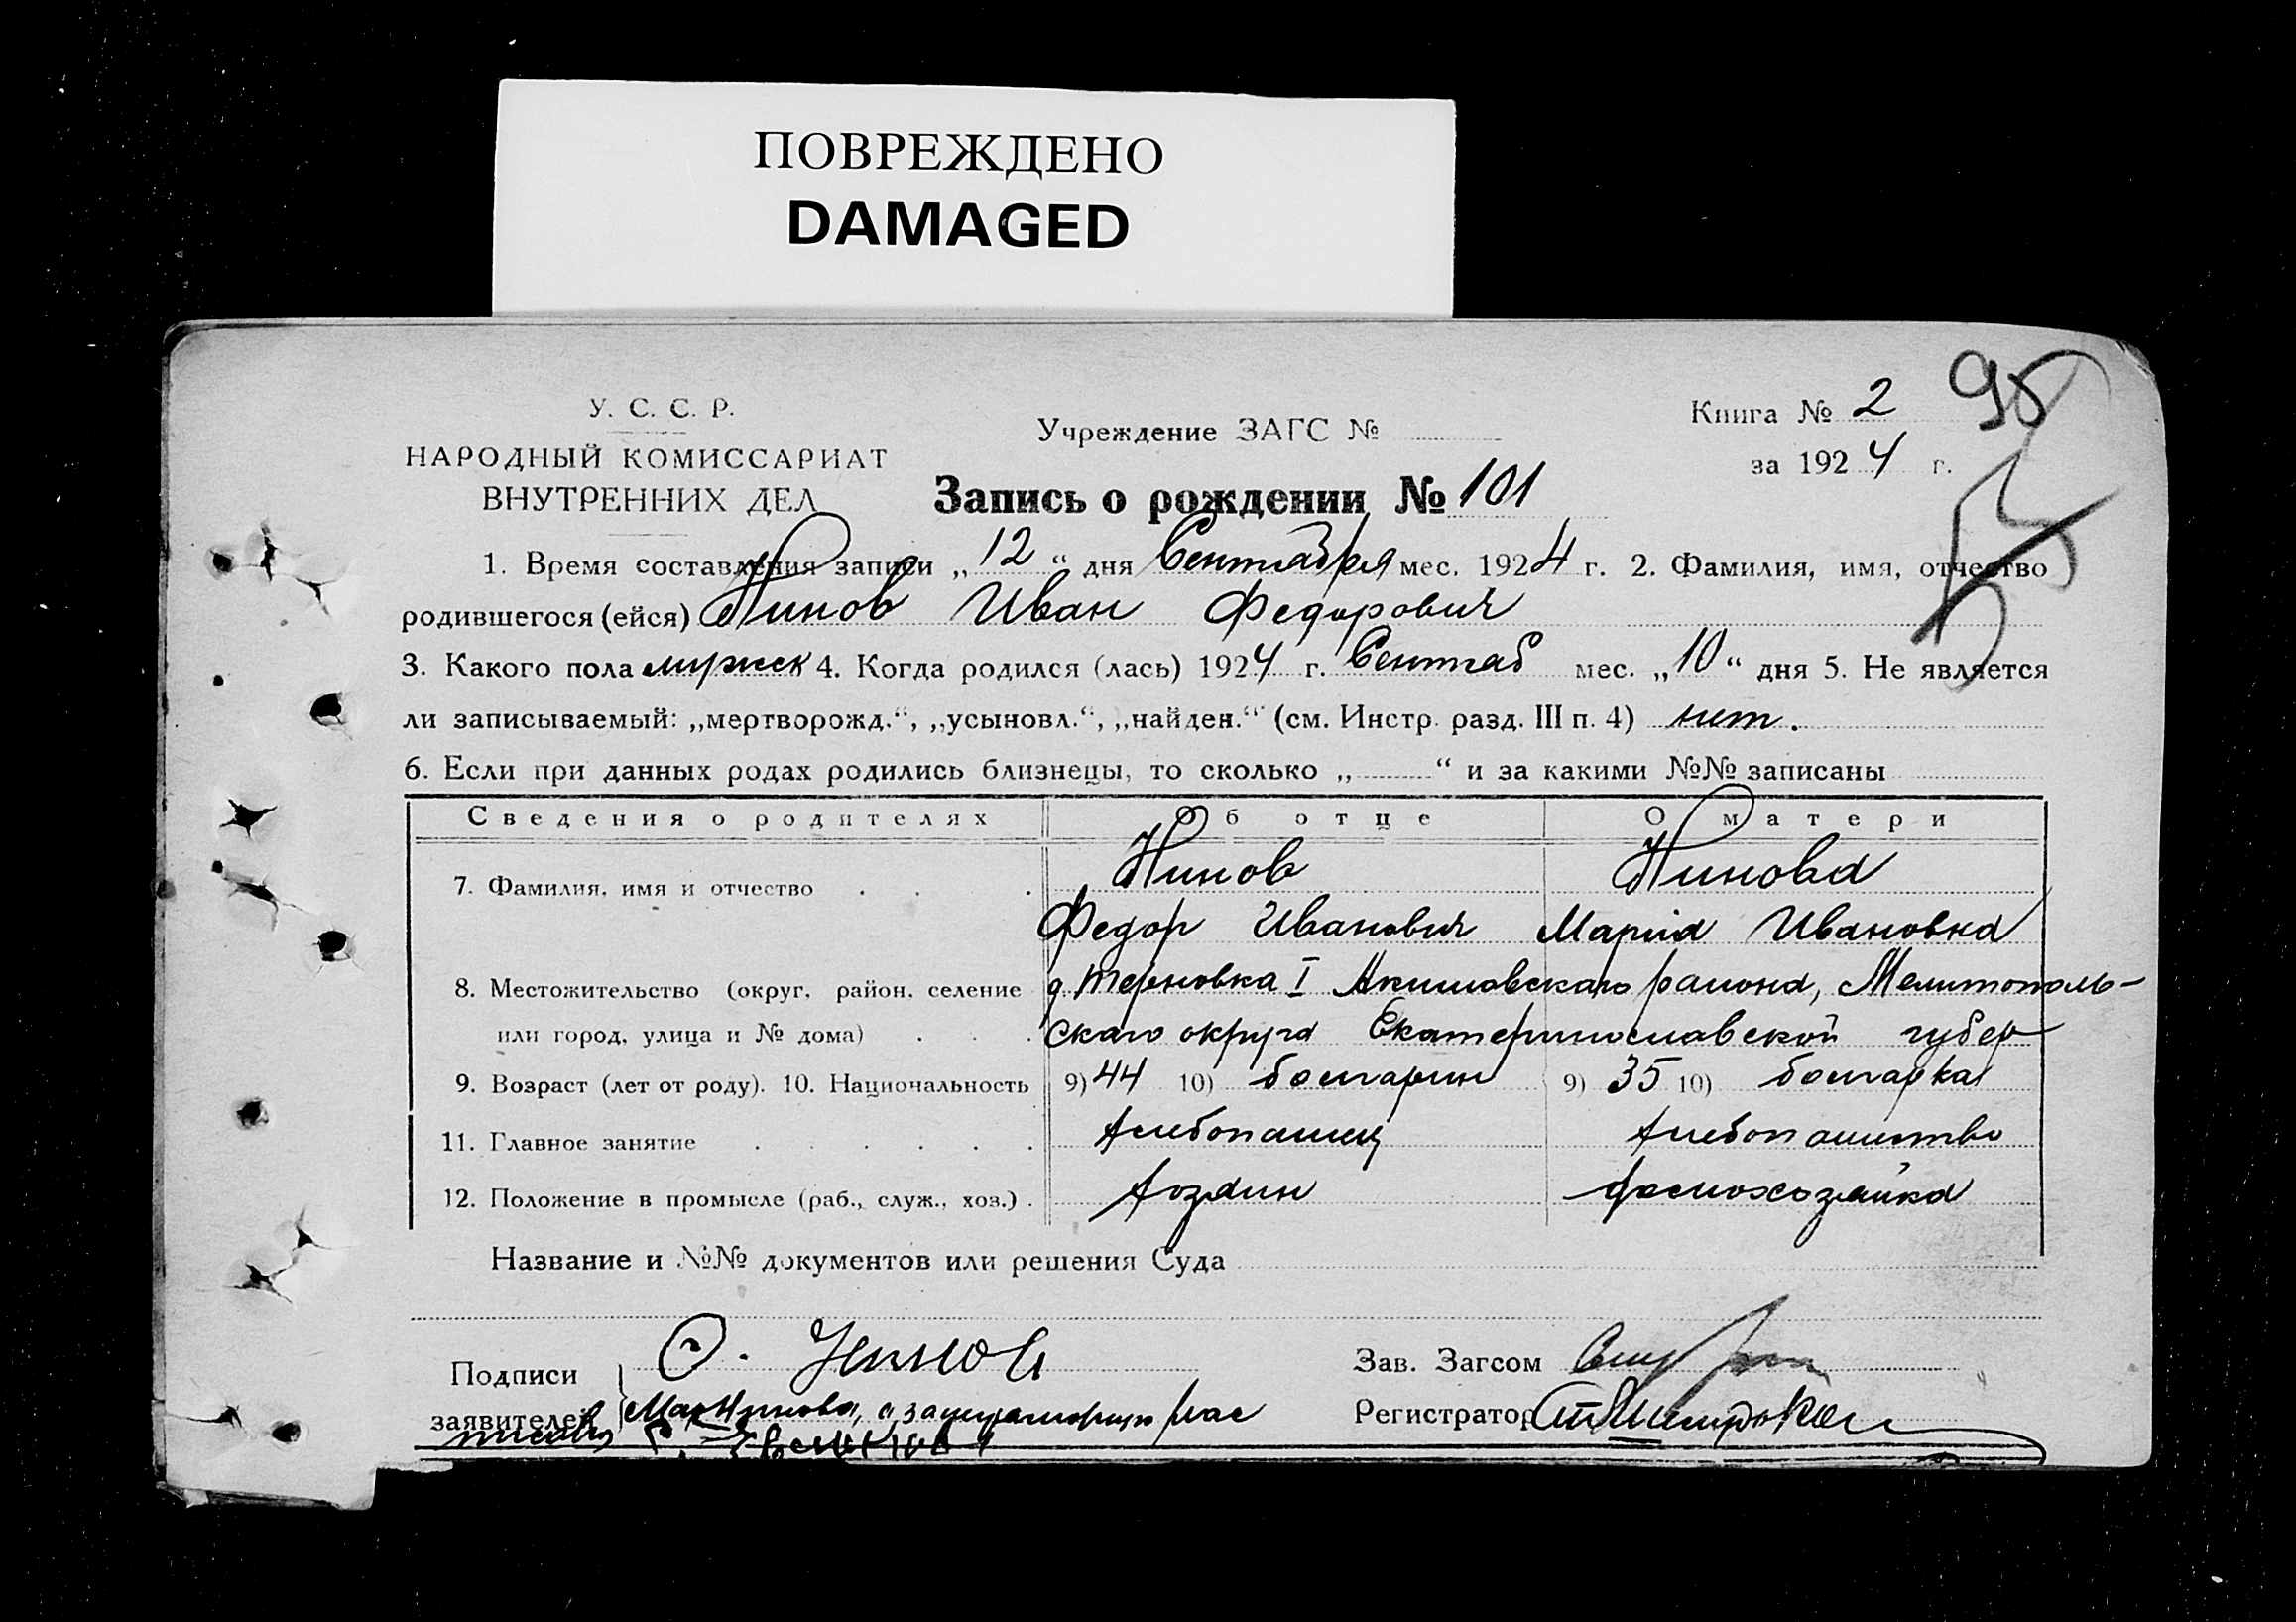 ПОВРЕЖДЕНО
DAMAGED
У. С. С. Р.
НАРОДНЫЙ КОМИССАРИАТ
ВНУТРЕННИХ ДЕЛ
Учреждение ЗАГС №
Запись о рождении № 101
Книга № 2
95
за 1924 г.
1. Время составления записи „12“ дня Сентября мес. 1924 г. 2. Фамилия, имя, отчество
родившегося (ейся) Нинов Иван Федорович
3. Какого пола мужск 4. Когда родился (лась) 1924 г. Сентяб мес. „10“ дня 5. Не является
ли записываемый: „мертворожд.“, „усыновл.“, „найден.“ (см. Инстр. разд. III п. 4) нет.
6. Если при данных родах родились близнецы, то сколько „ “ и за какими №№ записаны
Сведения о родителях Об отце О матери
7. Фамилия, имя и отчество Нинов Нинова
Федор Иванович Мария Ивановна
8. Местожительство (округ, район, селение д. Терновка I Акимовскаго района, Мелитополь-
или город, улица и № дома) скаго округа Екатеринославской губер
9. Возраст (лет от роду). 10. Национальность 9) 44 10) болгарин 9) 35 10) болгарка
11. Главное занятие хлебопашец хлебопашество
12. Положение в промысле (раб., служ., хоз.) хозяин домохозяйка
Название и №№ документов или решения Суда
Подписи Ф. Нинов
Зав. Загсом
заявителей Мар Нинова, а за неграмотную рас
Регистратор